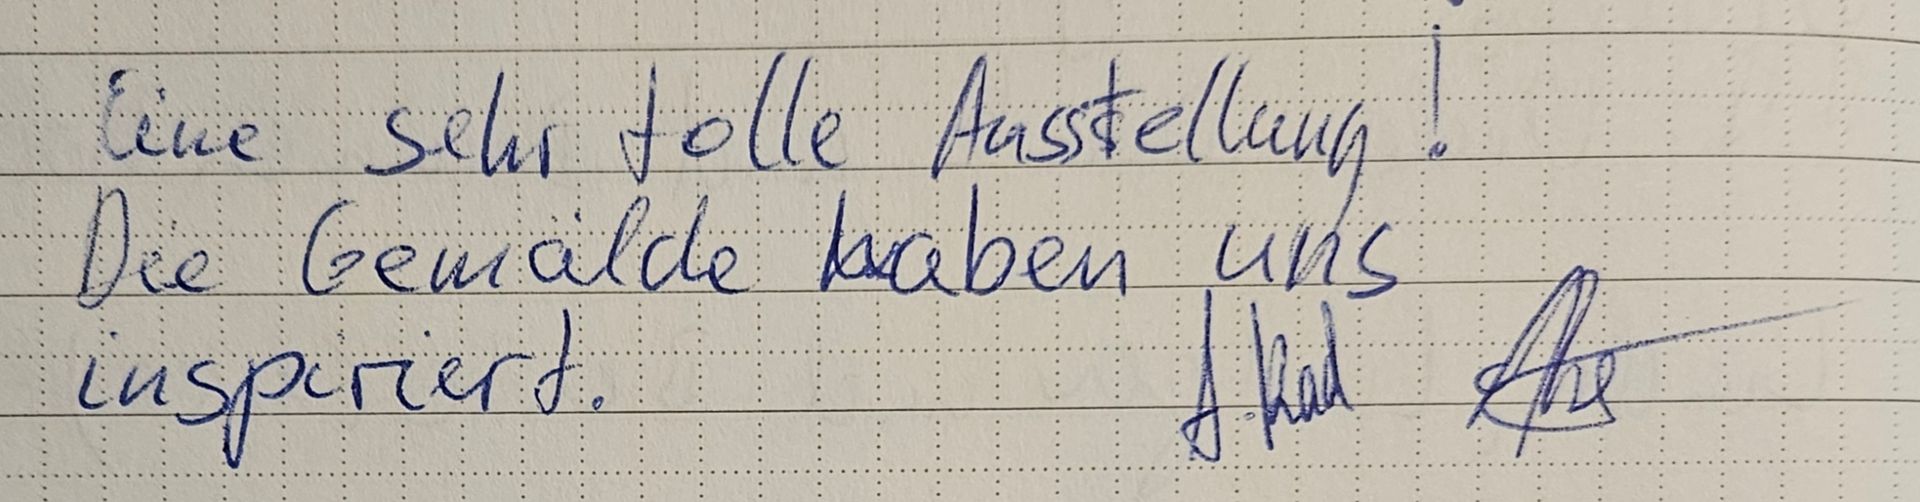 Eine sehr tolle Ausstellung!
Die Gemälde haben uns
inspiriert.